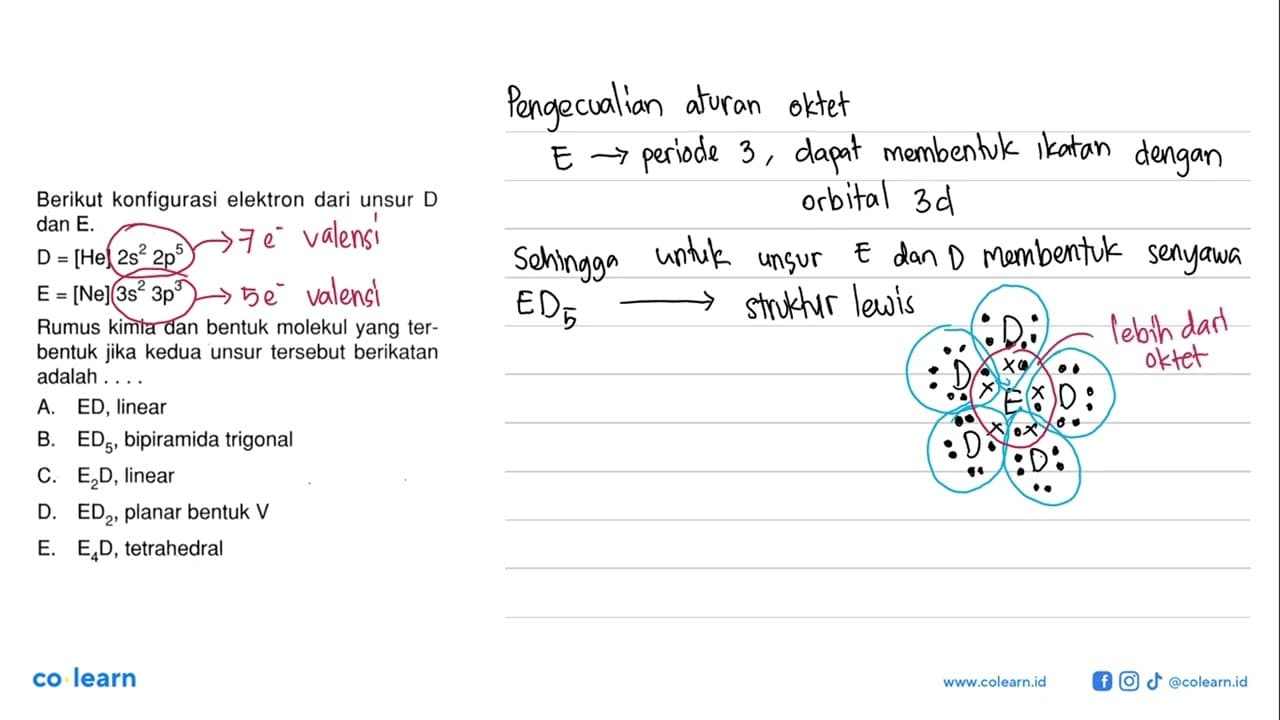 Berikut konfigurasi elektron dari unsur D
dan E.
D = [He] 2s² 2p⁵ → 7 e⁻ valensi
E = [Ne] 3s² 3p³ → 5 e⁻ valensi
Rumus kimia dan bentuk molekul yang ter-
bentuk jika kedua unsur tersebut berikatan
adalah . . . .
A. ED, linear
B. ED₅, bipiramida trigonal
C. E₂D, linear
D. ED₂, planar bentuk V
E. E₄D, tetrahedral
Pengecualian aturan oktet
E → periode 3, dapat membentuk ikatan dengan
orbital 3d
Sehingga untuk unsur E dan D membentuk senyawa
ED₅ → struktur lewis
D
D
E
D
D
D
lebih dari
oktet
co learn
www.colearn.id
@colearn.id